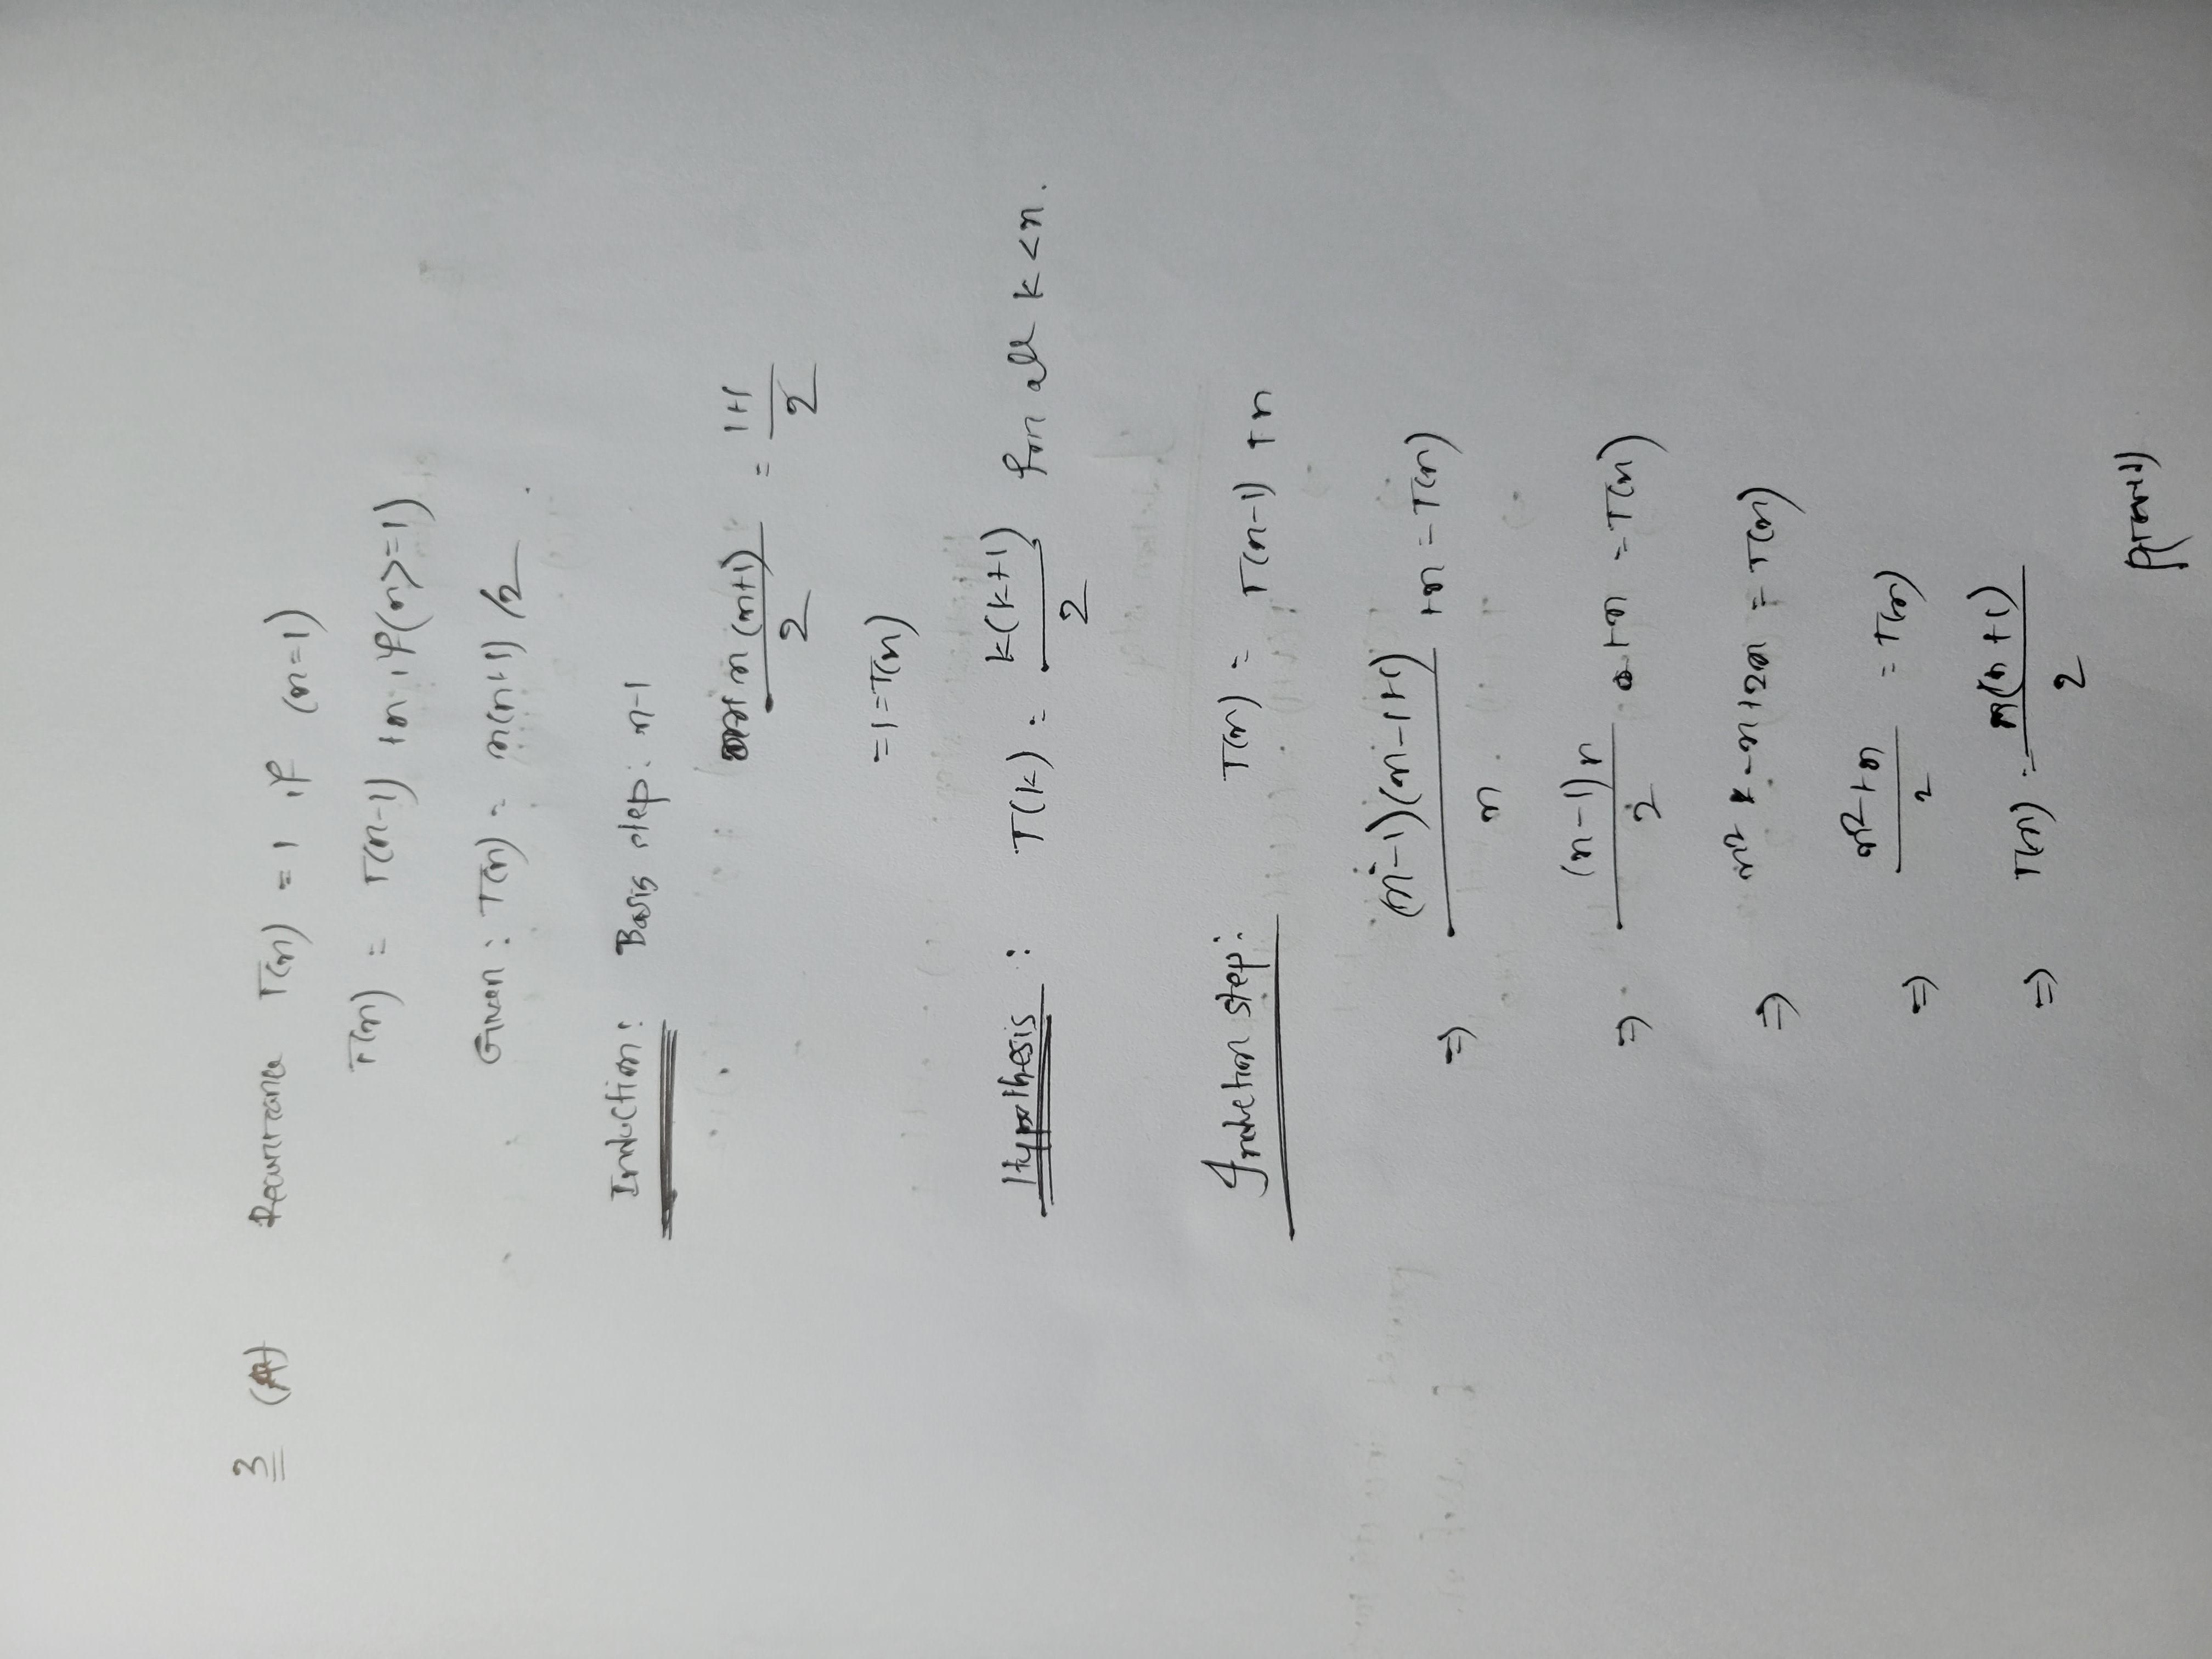 3 (A) Recurrance T(n) = 1 if (n=1)
T(n) = T(n-1) +n if (n>=1)
Given : T(n) = n(n+1) /2
Induction: Basis step: n-1
n(n+1)/2 = 1+1/2
=1=T(n)
Hypothesis : T(k) = k(k+1)/2 for all k<n.
Induction step: T(n) = T(n-1) +n
⇒ (n-1)(n-1+1)/n +n = T(n)
⇒ (n-1)n/2 +n = T(n)
⇒ n² -n+2n = T(n)
⇒ n²+n/2 = T(n)
⇒ T(n) = n(n+1)/2
(proved)